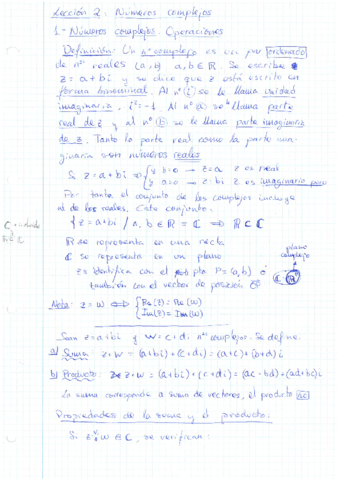 Lección 2: Números complejos
1- Números complejos. Operaciones
Definición: Un nº complejo es un par ordenado
de nºs reales (a,b) a,b ∈ ℝ. Se escribe
z = a+bi y se dice que z está escrito en
forma binomial. Al nº (i) se le llama unidad
imaginaria, i²=-1. Al nº (a) se le llama parte
real de z y al nº (b) se le llama parte imaginaria
de z. Tanto la parte real como la parte ima-
ginaria son números reales
Si z = a+bi ⇒ { y b=0 → z=a z es real
y a=0 → z=bi z es imaginario puro
Por tanto el conjunto de los números complejos incluye
al de los reales. Este conjunto:
{z = a+bi / a, b ∈ ℝ} = ℂ ⇒ ℝ ⊂ ℂ
ℝ se representa en una recta
ℂ se representa en un plano
plano
complejo
z se identifica con el pto P=(a,b) ó
también con el vector de posición
Nota: z = w ⇔ { Re(z) = Re(w)
Im(z) = Im(w)
Sean z = a+bi y w = c+di nºs complejos. Se define:
a) Suma: z+w = (a+bi)+(c+di) = (a+c)+(b+d)i
b) Producto: z·w = (a+bi)·(c+di) = (ac-bd)+(ad+bc)i
La suma corresponde a suma de vectores, el producto no
Propiedades de la suma y el producto:
Si z, w ∈ ℂ, se verifican: